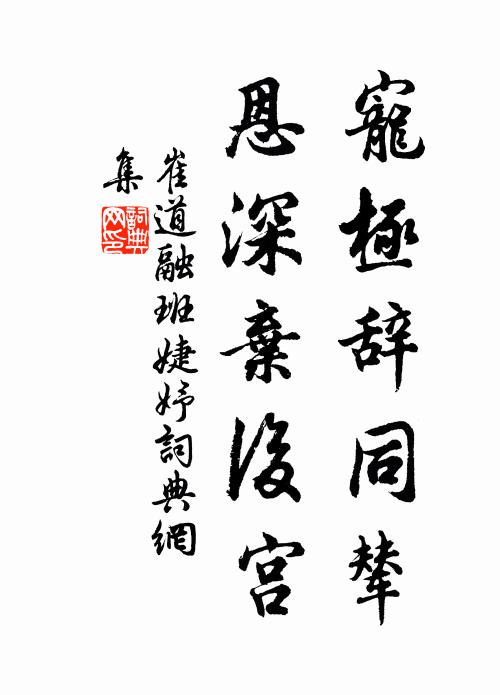 寵極辞同輦
恩深棄後宮
崔道融班婕妤詞典網
集
詞典网印